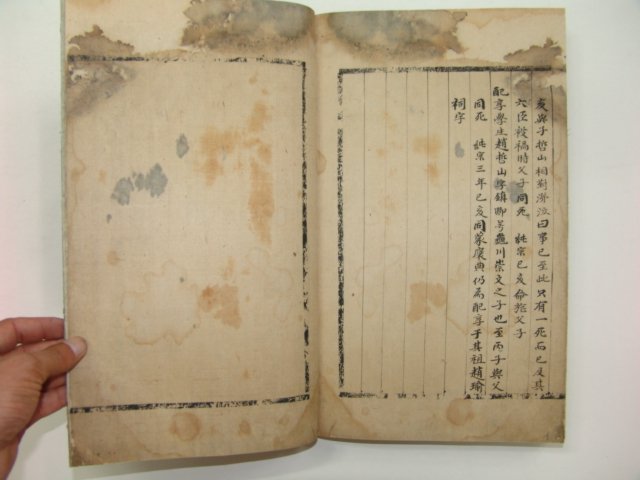 友與子哲山相對涕泣曰事已至此只有一死而已及其
六臣殺禍時父子同死 純宗己亥命旌父子
配享學生趙哲山字鎭卿号龜川崇文之子也至丙子與父
同死 純宗三年己亥同蒙褒典仍爲配享于其祖趙瑜
祠宇